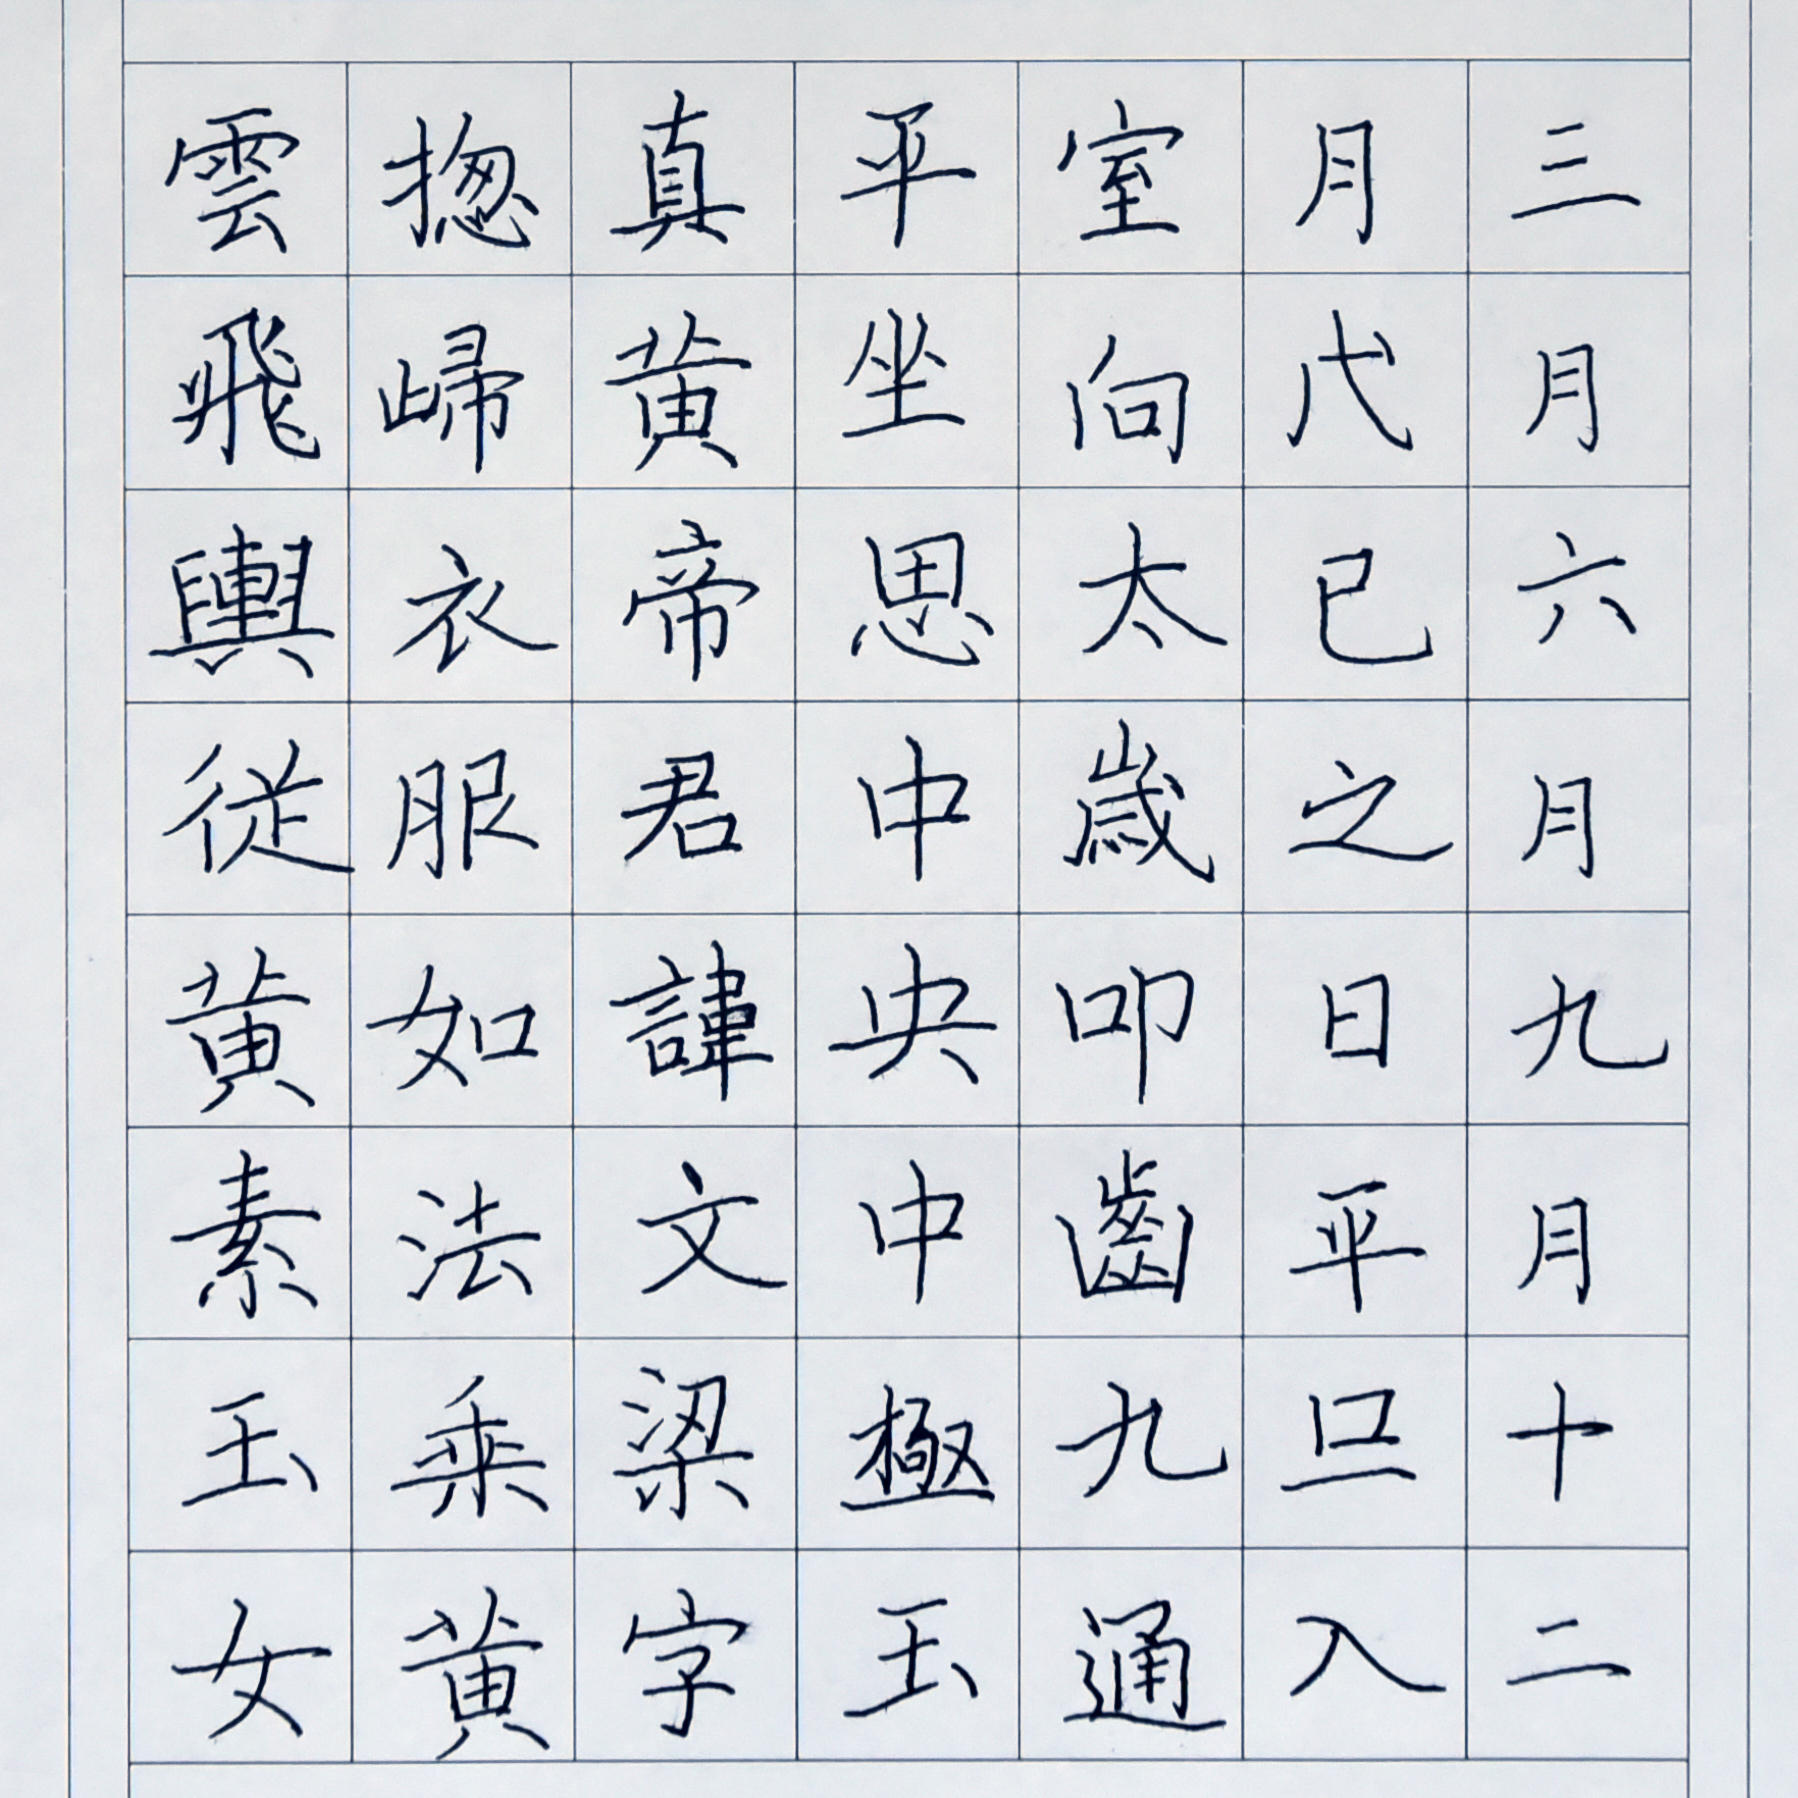 三月六月九月十二
月代已之日平旦入
室向太歲叩齒九通
平坐思中央中極玉
真黃帝君諱文梁字
揔歸衣服如法乘黃
雲飛輿從黃素玉女